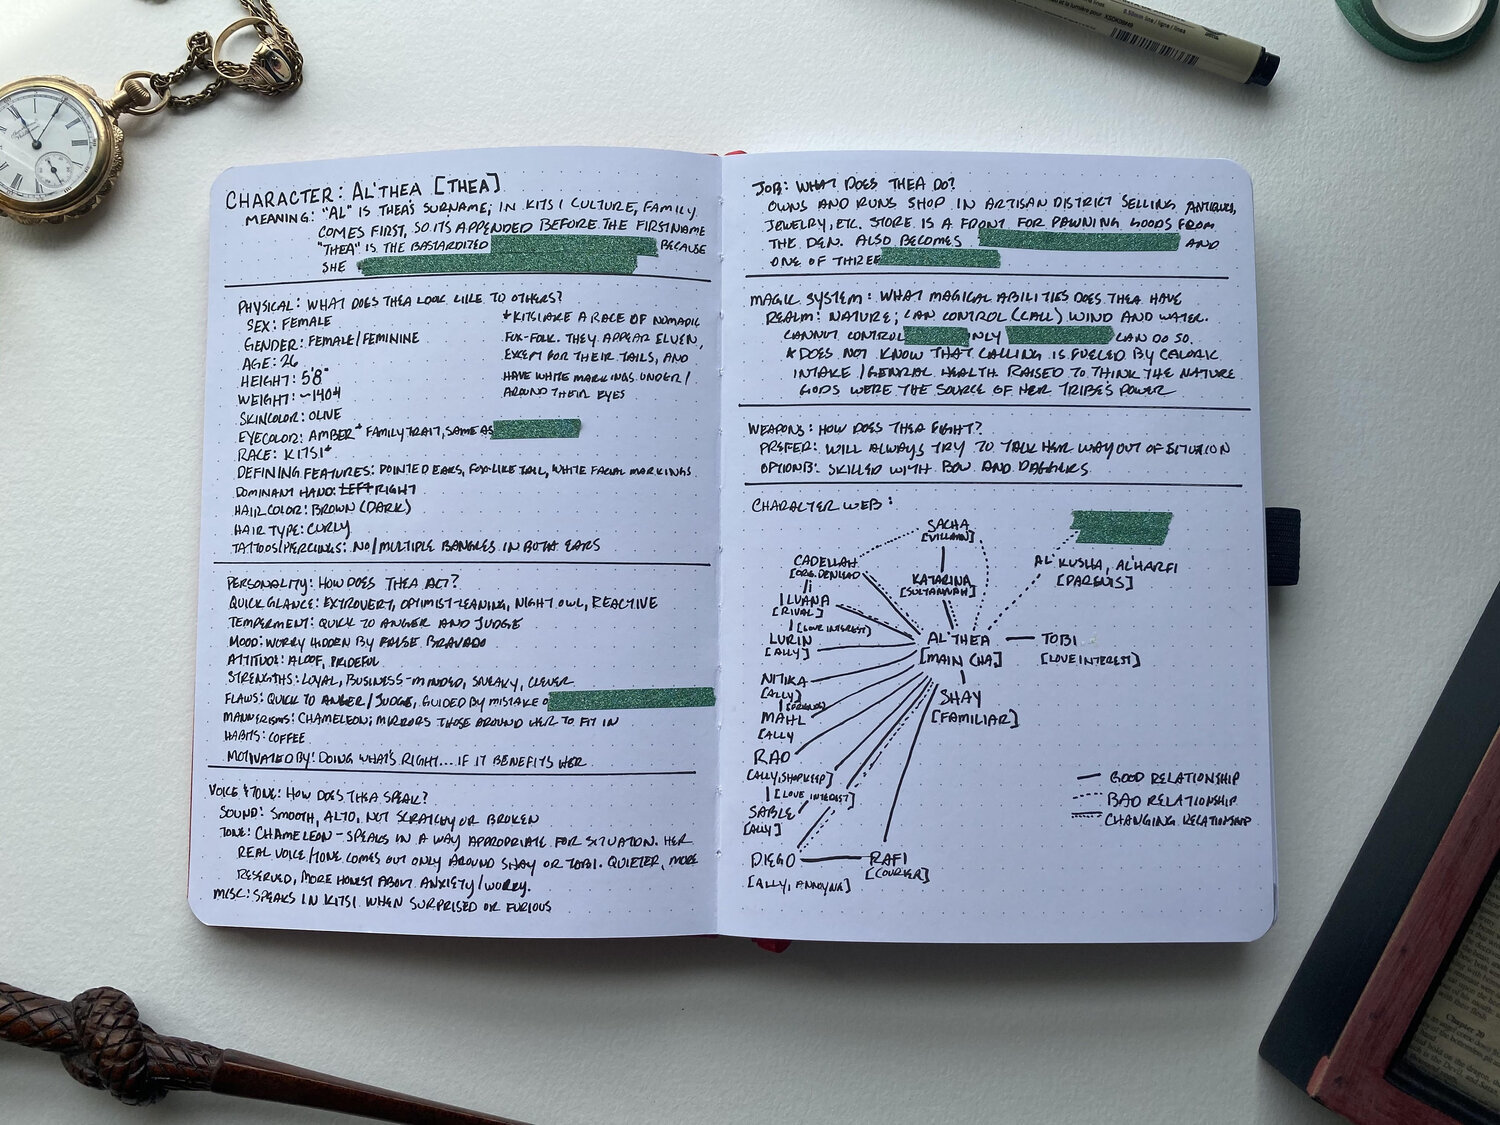 CHARACTER: AL'THEA [THEA]
MEANING: "AL" IS THEA'S SURNAME; IN KITSI CULTURE, FAMILY
COMES FIRST, SO ITS APPENDED BEFORE THE FIRSTNAME
"THEA" IS THE BASTARDIZED BECAUSE
SHE
PHYSICAL: WHAT DOES THEA LOOK LIKE TO OTHERS?
SEX: FEMALE
GENDER: FEMALE/FEMININE
AGE: 26
HEIGHT: 5'8"
WEIGHT: ~140#
SKINCOLOR: OLIVE
EYECOLOR: AMBER* FAMILY TRAIT, SAME AS
RACE: KITSI*
DEFINING FEATURES: POINTED EARS, FOX-LIKE TAIL, WHITE FACIAL MARKINGS
DOMINANT HAND: LEFT RIGHT
HAIR COLOR: BROWN (DARK)
HAIR TYPE: CURLY
TATTOOS/PIERCINGS: NO/MULTIPLE BANGLES IN BOTH EARS
*KITSI ARE A RACE OF NOMADIC
FOX-FOLK. THEY APPEAR ELVEN,
EXCEPT FOR THEIR TAILS, AND
HAVE WHITE MARKINGS UNDER/
AROUND THEIR EYES
PERSONALITY: HOW DOES THEA ACT?
QUICK GLANCE: EXTROVERT, OPTIMIST-LEANING, NIGHT OWL, REACTIVE
TEMPERMENT: QUICK TO ANGER AND JUDGE
MOOD: WORRY HIDDEN BY FALSE BRAVADO
ATTITUDE: ALOOF, PRIDEFUL
STRENGTHS: LOYAL, BUSINESS-MINDED, SNEAKY, CLEVER
FLAWS: QUICK TO ANGER/JUDGE, GUIDED BY MISTAKE
MANNERISMS: CHAMELEON; MIRRORS THOSE AROUND HER TO FIT IN
HABITS: COFFEE
MOTIVATED BY: DOING WHAT'S RIGHT... IF IT BENEFITS HER
VOICE & TONE: HOW DOES THEA SPEAK?
SOUND: SMOOTH, ALTO, NOT SCRATCHY OR BROKEN
TONE: CHAMELEON - SPEAKS IN A WAY APPROPRIATE FOR SITUATION. HER
REAL VOICE/TONE COMES OUT ONLY AROUND SHAY OR TOBI. QUIETER, MORE
RESERVED, MORE HONEST ABOUT ANXIETY/WORRY.
MISC: SPEAKS IN KITSI WHEN SURPRISED OR FURIOUS
JOB: WHAT DOES THEA DO?
OWNS AND RUNS SHOP IN ARTISAN DISTRICT SELLING ANTIQUES,
JEWELRY, ETC. STORE IS A FRONT FOR PAWNING GOODS FROM
THE DEN. ALSO BECOMES AND
ONE OF THREE
MAGIC SYSTEM: WHAT MAGICAL ABILITIES DOES THEA HAVE
REALM: NATURE; CAN CONTROL (CALL) WIND AND WATER.
CANNOT CONTROL ONLY CAN DO SO.
*DOES NOT KNOW THAT CALLING IS FUELED BY CALORIC
INTAKE/GENERAL HEALTH. RAISED TO THINK THE NATURE
GODS WERE THE SOURCE OF HER TRIBE'S POWER
WEAPONS: HOW DOES THEA FIGHT?
PREFER: WILL ALWAYS TRY TO TALK HER WAY OUT OF SITUATION
OPTION B: SKILLED WITH BOW AND DAGGERS
CHARACTER WEB:
SACHA
[VILLAIN]
CADELLAH
[ORG. DEN LEAD
KATARINA
[SULTANNAH]
AL'KUSHA, AL'HARFI
[PARENTS]
ILUANA
[RIVAL]
[LOVE INTEREST]
LURIN
[ALLY]
AL'THEA
[MAIN CHA]
TOBI
[LOVE INTEREST]
NITIKA
[ALLY]
[FRIENDS]
MAHL
[ALLY
SHAY
[FAMILIAR]
RAD
[ALLY, SHOPKEEP]
[LOVE INTEREST]
SABLE
[ALLY]
DIEGO
[ALLY, ANNOYNG]
RAFI
[COURIER]
GOOD RELATIONSHIP
BAD RELATIONSHIP
CHANGING RELATIONSHIP
Chapter 20